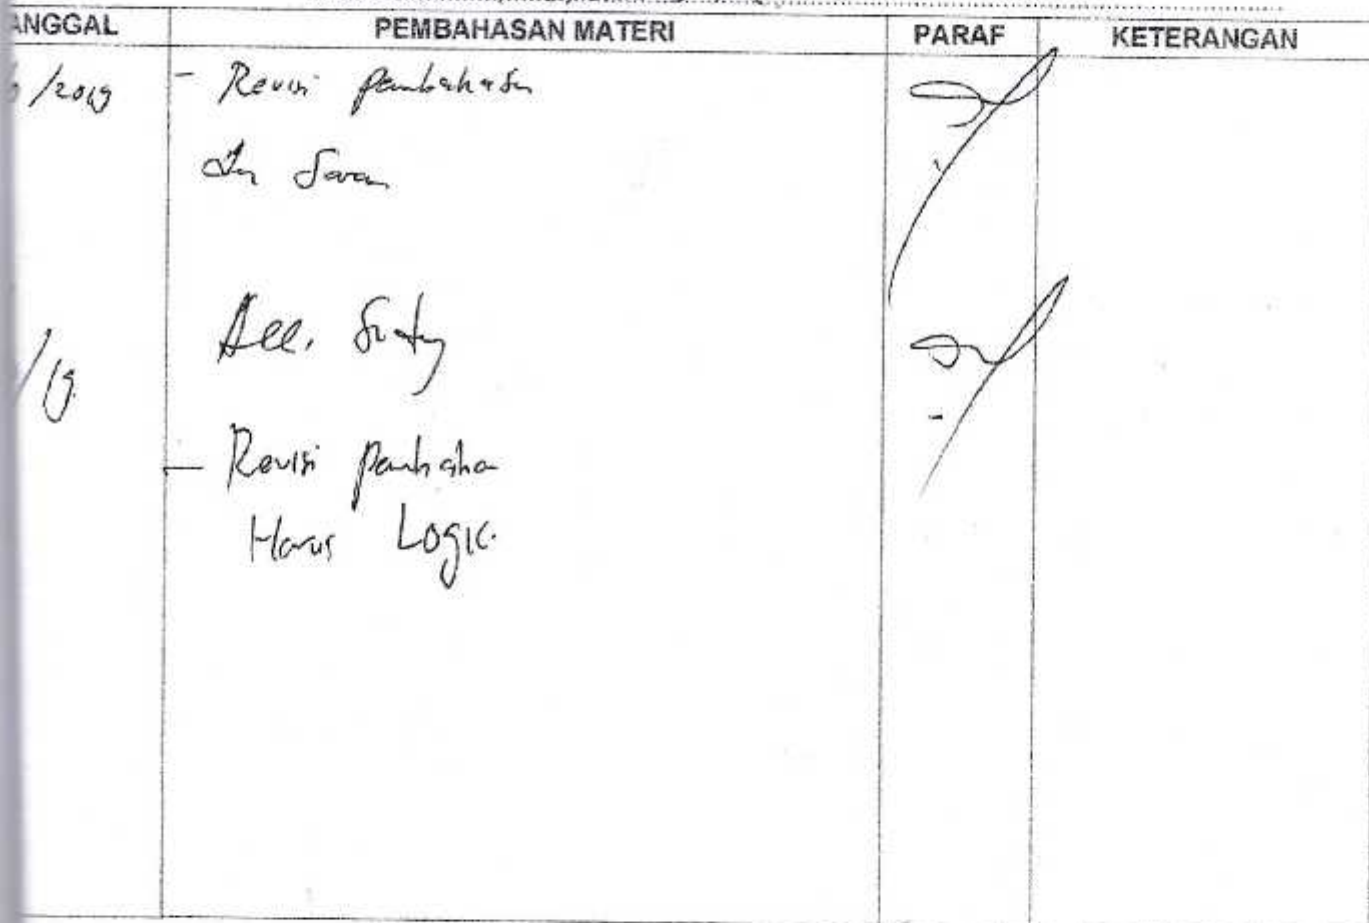 ANGGAL PEMBAHASAN MATERI PARAF KETERANGAN
/2019 - Revisi pembahasan
dan Saran
Acc.
/19
- Revisi pembaha
Harus Logic.